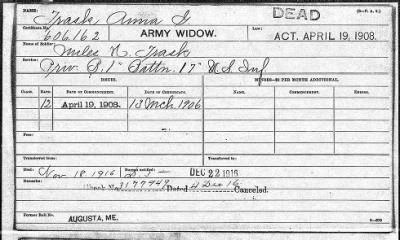 DEAD
NAME: Trask, Anna G. (3—F. A. B.)
Certificate No. 606,162 ARMY WIDOW. Law: ACT. APRIL 19, 1908.
Name of Soldier: Miles R. Trask
Service: Priv. B, 1" Battn. 17" U.S. Inf
ISSUES. PER MONTH ADDITIONAL.
CLASS. RATE. DATE OF COMMENCEMENT. DATE OF CERTIFICATE. CLASS. RATE. DATE OF COMMENCEMENT. DATE OF CERTIFICATE.
12 April 19, 1908. 13 Mch. 1906
Transferred from
Transferred to
Died: Nov 18 1916 DEC 22 1916
Remarks: Check No. 3177949 Dated 4 Dec 16 Canceled.
Former Roll No.
AUGUSTA, ME.